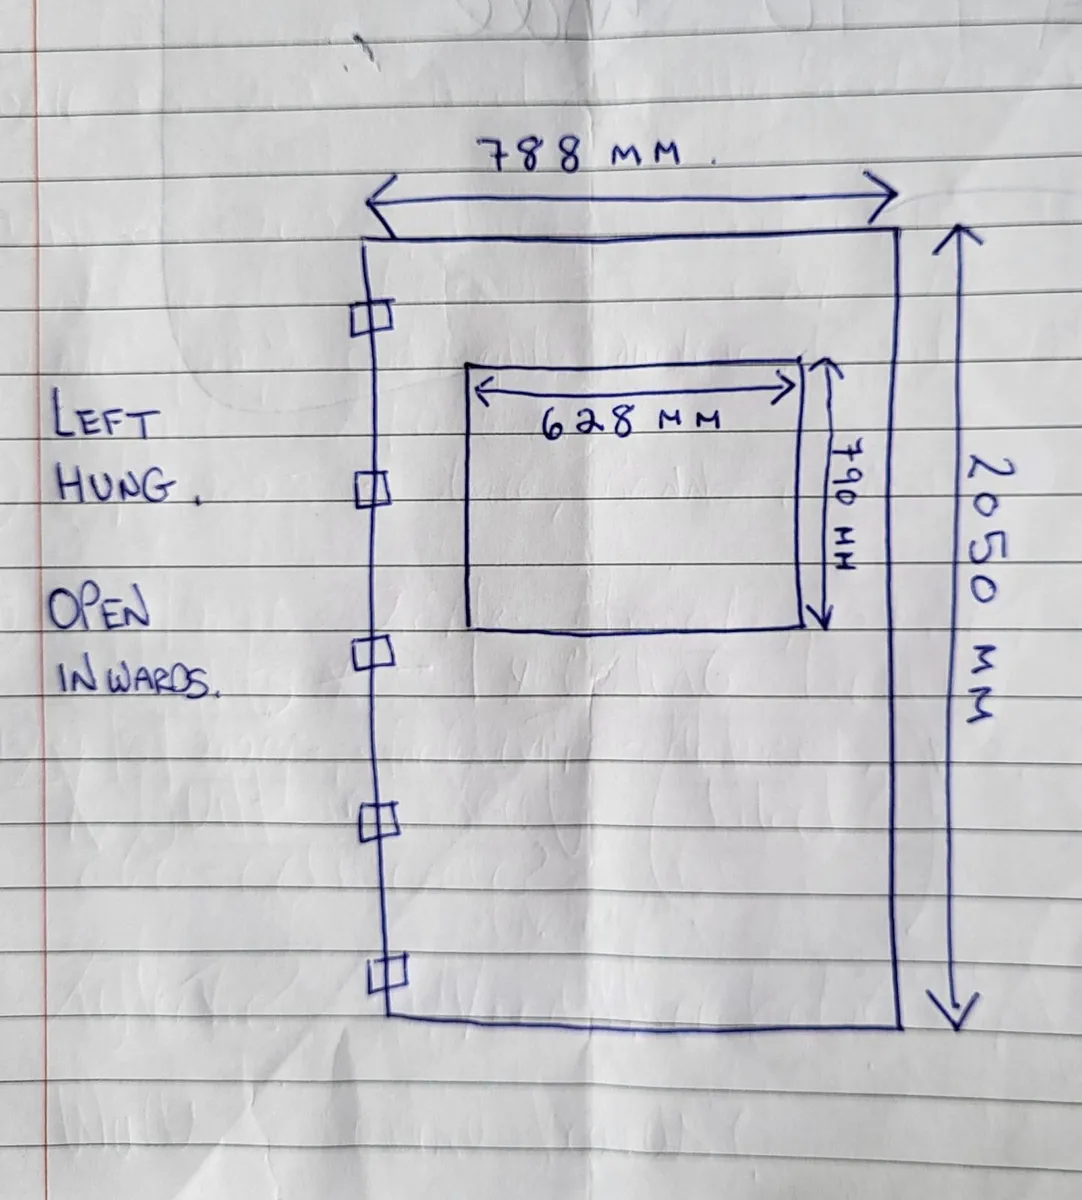 788 MM.
628 MM
790 MM
2050 MM
LEFT
HUNG.
OPEN
INWARDS.